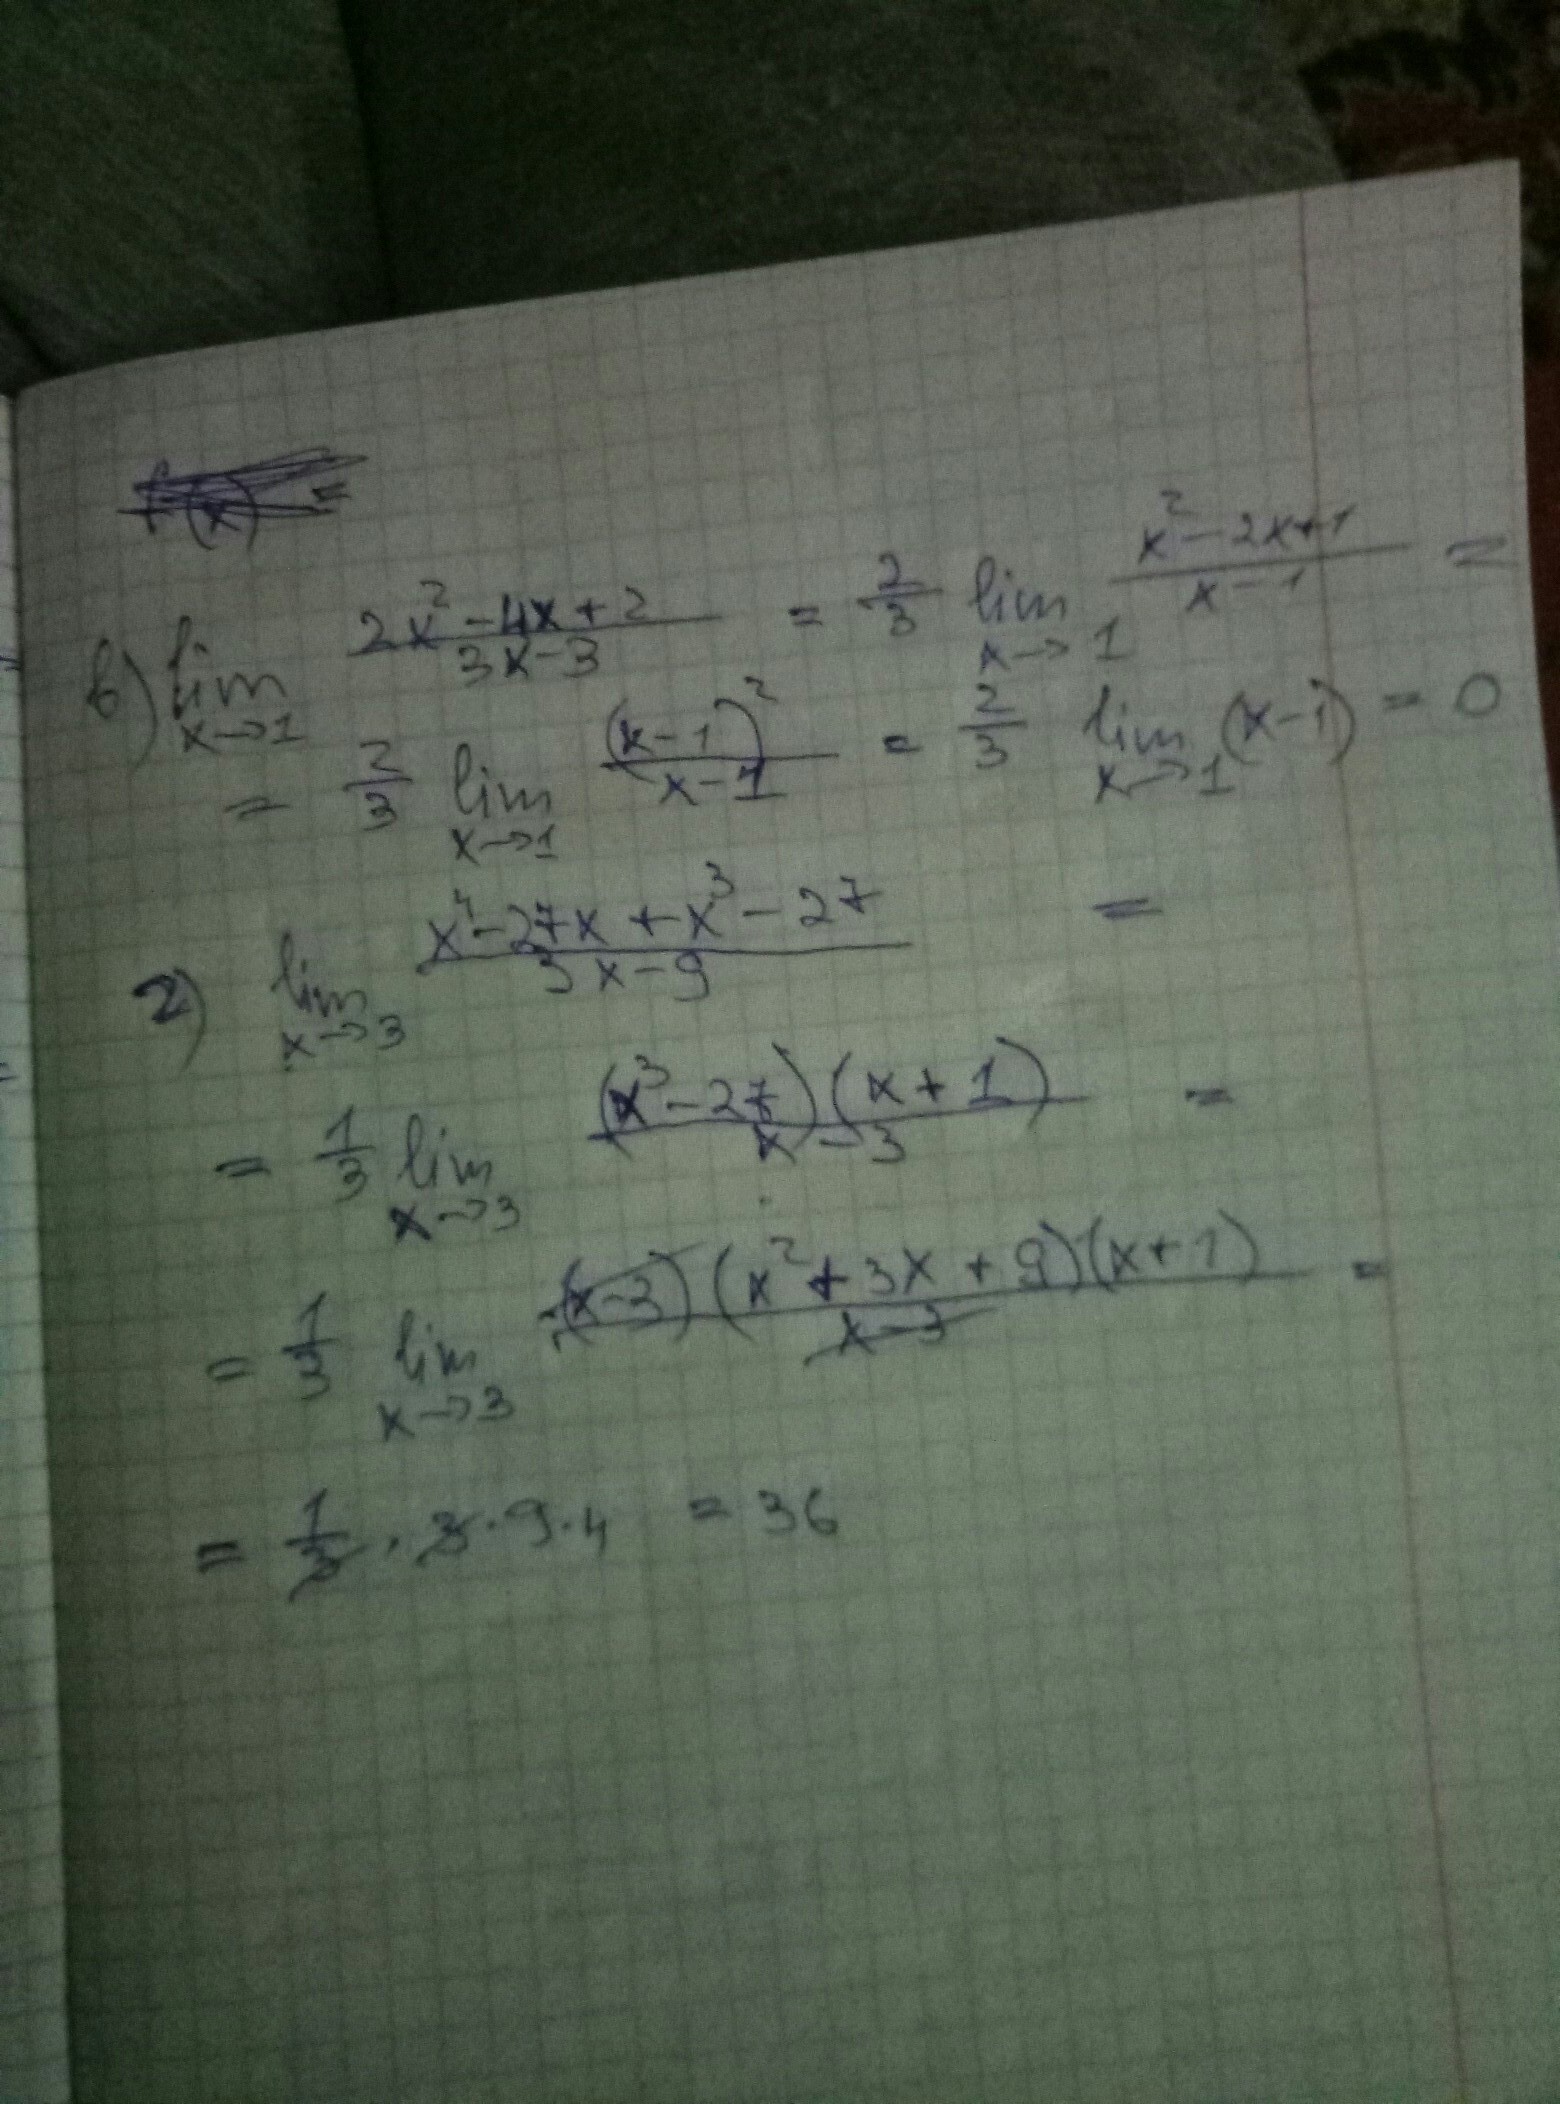 f(x) =
в) lim x→1 (2x² - 4x + 2)/(3x - 3) = 2/3 lim x→1 (x² - 2x + 1)/(x - 1) =
= 2/3 lim x→1 (x - 1)²/(x - 1) = 2/3 lim x→1 (x - 1) = 0
г) lim x→3 (x⁴ - 27x + x³ - 27)/(3x - 9) =
= 1/3 lim x→3 (x³ - 27)(x + 1)/(x - 3) =
= 1/3 lim x→3 (x - 3)(x² + 3x + 9)(x + 1)/(x - 3) =
= 1/3 · 3 · 9 · 4 = 36